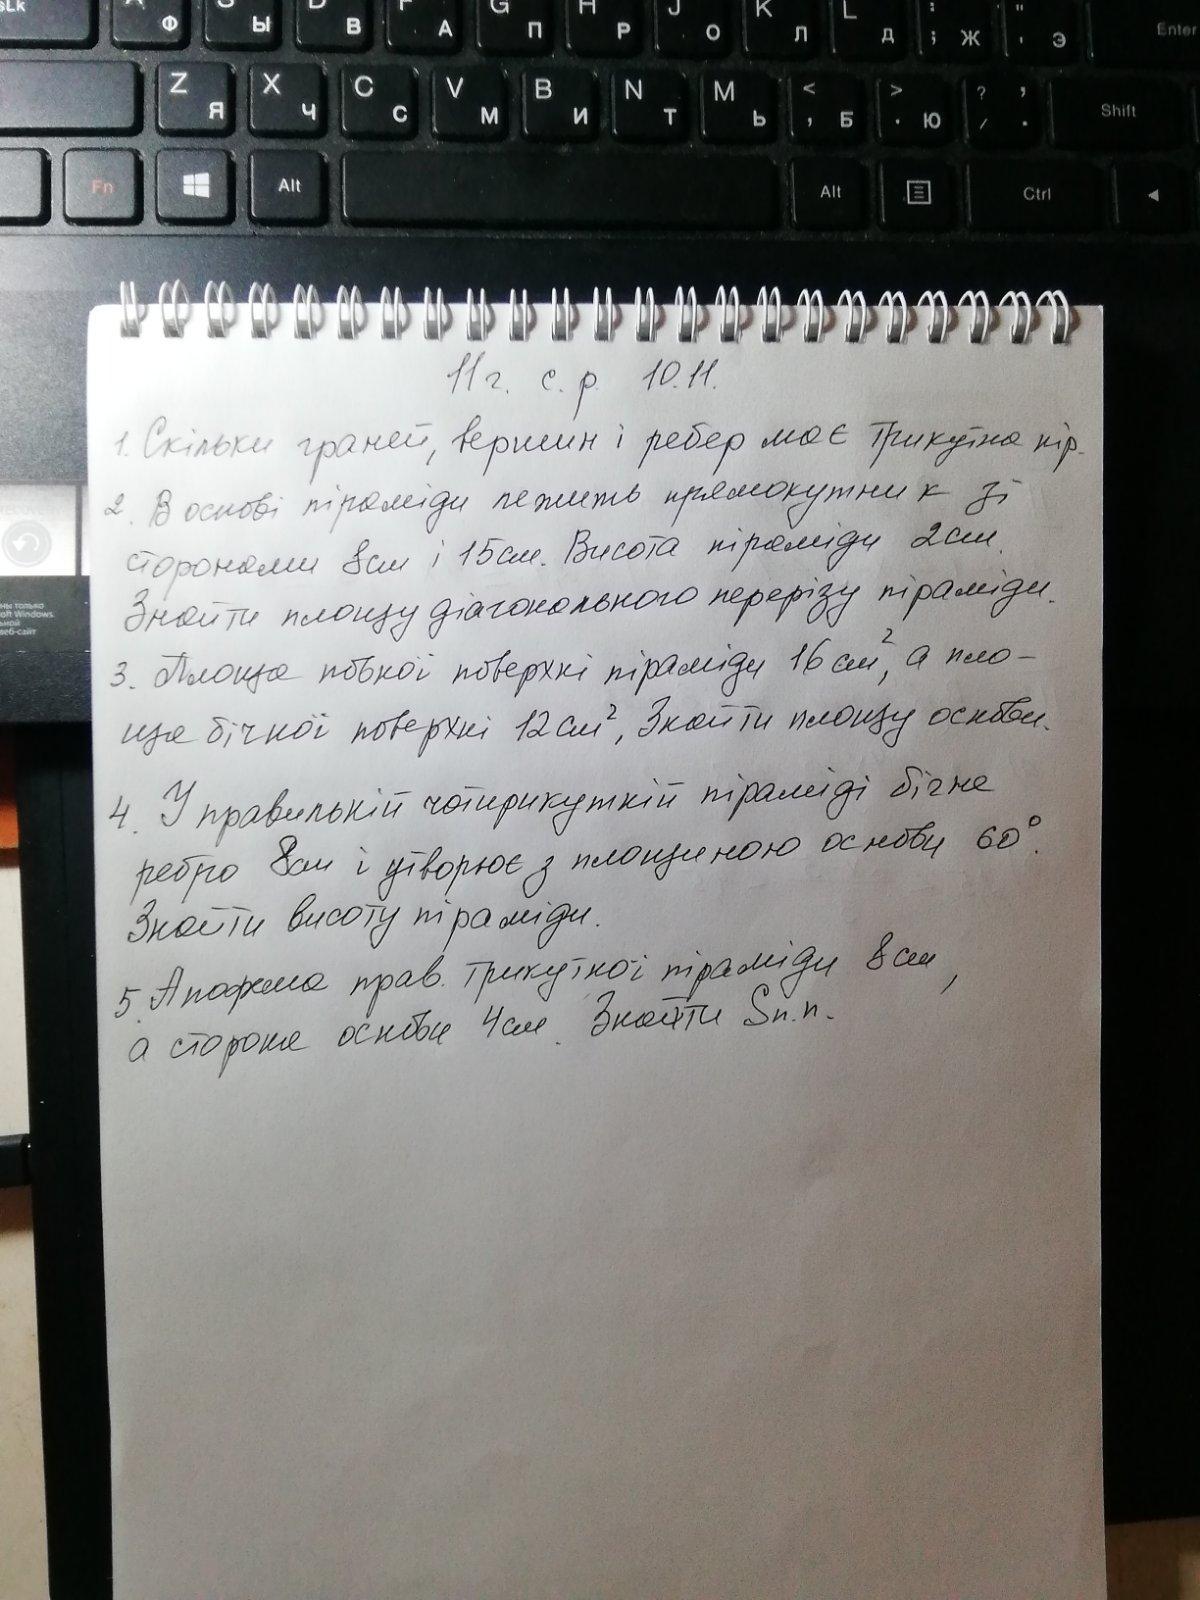 sLk A Ф S Ы D В F А G П H Р J О K Л L Д : ; Ж " ' Э Enter
Z Я X Ч C С V М B И N Т M Ь < , Б > . Ю ? / , . Shift
Fn Alt Alt Ctrl
11г. с. р. 10.11.
1. Скільки граней, вершин і ребер має трикутна пір.
2. В основі піраміди лежить прямокутник зі
сторонами 8см і 15см. Висота піраміди 2см.
Знайти площу діагонального перерізу піраміди.
3. Площа повної поверхні піраміди 16 см², а пло-
ща бічної поверхні 12 см², Знайти площу основи.
4. У правильній чотирикутній піраміді бічне
ребро 8см і утворює з площиною основи 60°.
Знайти висоту піраміди.
5. Апофема прав. трикутної піраміди 8см,
а сторона основи 4см. Знайти Sп.п.
ны только
oft Windows.
ьной
веб-сайт